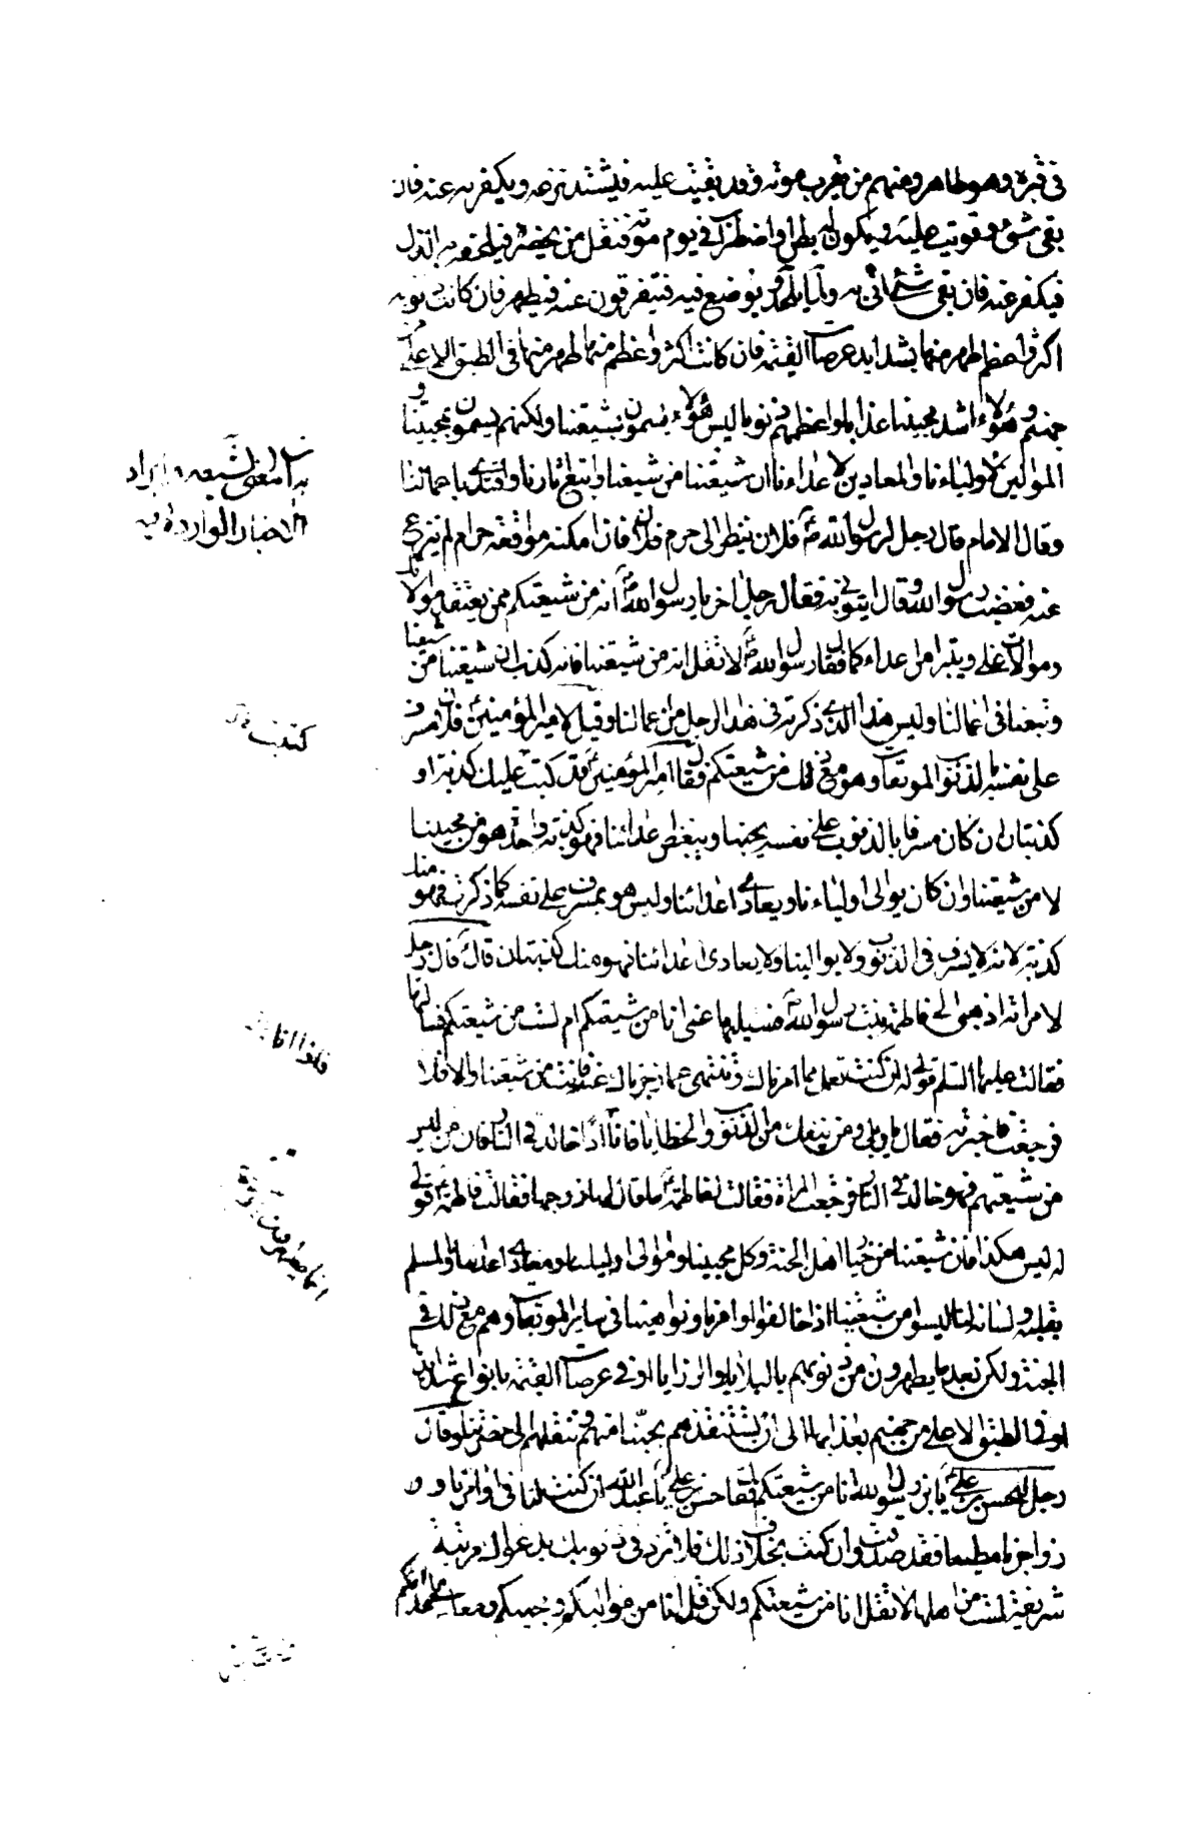 في قبره وهو طاهر ومنهم من يقرب موته وقد بقيت عليه فيشتد نزعه ويكفر به عنه فان
بقي شئ وقويت عليه ويكون له بطر او اضطراب في يوم موته فيقل من بحضرته فيلحقه به الذل
فيكفر عنه فان بقي شئ اتي به ولما يلحد ويوضع فيه فيتفرقون عنه فيطهر فان كانت ذنوبه
اكثر واعظم طهر منها بشدايد عرصات القيمة فان كانت اكثر واعظم منها طهر منها في الطبق الاعلى من
جهنم وهؤلاء اشد محبينا عذابا واعظمهم ذنوبا ليس هؤلاء يسمون بشيعتنا ولكنهم يسمون بمحبينا و
الموالين لاوليائنا والمعادين لاعدائنا ان شيعتنا من شيعنا واتبع آثارنا واقتدى باعمالنا
وقال الامام قال رجل لرسول الله ص فلان ينظر الى حرم فلان فان امكنه مواقعة حرام لم ينزع
عنه فغضب رسول الله وقال ايتوني به فقال رجل اخر يا رسول الله ص انه من شيعتكم ممن يعتقد موالاتك
وموالات علي ويتبرا من اعدائكما فقال رسول الله ص لا تقل انه من شيعتنا فانه كذب ان شيعتنا من شيعنا
وتبعنا في اعمالنا وليس هذا الذي ذكرته في هذا الرجل من اعمالنا وقيل لامير المؤمنين فلان مسرف
على نفسه بالذنوب الموبقات وهو مع ذلك من شيعتكم فقال امير المؤمنين قد كتبت عليك كذبة او
كذبتان ان كان مسرفا بالذنوب على نفسه يحبنا ويبغض اعدائنا فهو كذبة واحدة هو من محبينا
لا من شيعتنا وان كان يوالي اوليائنا ويعادي اعدائنا وليس هو بمسرف على نفسه كما ذكرت فهو منك
كذبة لانه لا يسرف في الذنوب ولا يوالينا ولا يعادي اعدائنا فهو منك كذبتان قال ع قال رجل
لامراته اذهبي الى فاطمة بنت رسول الله ص فسليها عني انا من شيعتكم ام لست من شيعتكم فسالتها
فقالت عليها السلم قولي له ان كنت تعمل بما امرناك وتنتهي عما زجرناك عنه فانت من شيعتنا والا فلا
فرجعت فاخبرته فقال يا ويلي ومن ينفك من الذنوب والخطايا فانا اذا خالد في النار فان من ليس
من شيعتهم فهو خالد في النار فرجعت المراة فقالت لفاطمة ع ما قال لها زوجها فقالت فاطمة ع قولي
له ليس هكذا فان شيعتنا من خيار اهل الجنة وكل محبينا وموالي اوليائنا ومعادي اعدائنا والمسلم
بقلبه ولسانه لنا ليسوا من شيعتنا اذا خالفوا اوامرنا ونواهينا في ساير الموبقات وهم مع ذلك في
الجنة ولكن بعد ما يطهرون من ذنوبهم بالبلايا والرزايا او في عرصات القيمة بانواع شدايدها
او في الطبق الاعلى من جهنم بعذابها الى ان نستنقذهم بحبنا منها وننقلهم الى حضرتنا وقال
رجل للحسن بن علي ع يابن رسول الله انا من شيعتكم فقال حسن بن علي ع يا عبد الله ان كنت لنا في اوامرنا و
زواجرنا مطيعا فقد صدقت وان كنت بخلاف ذلك فلا تزد في ذنوبك بدعواك مرتبة
شريفة لست من اهلها لا تقل انا من شيعتكم ولكن قل انا من مواليكم ومحبيكم ومعادي اعدائكم
معنى الشيعه وايراد
الاخبار الوارده فيه